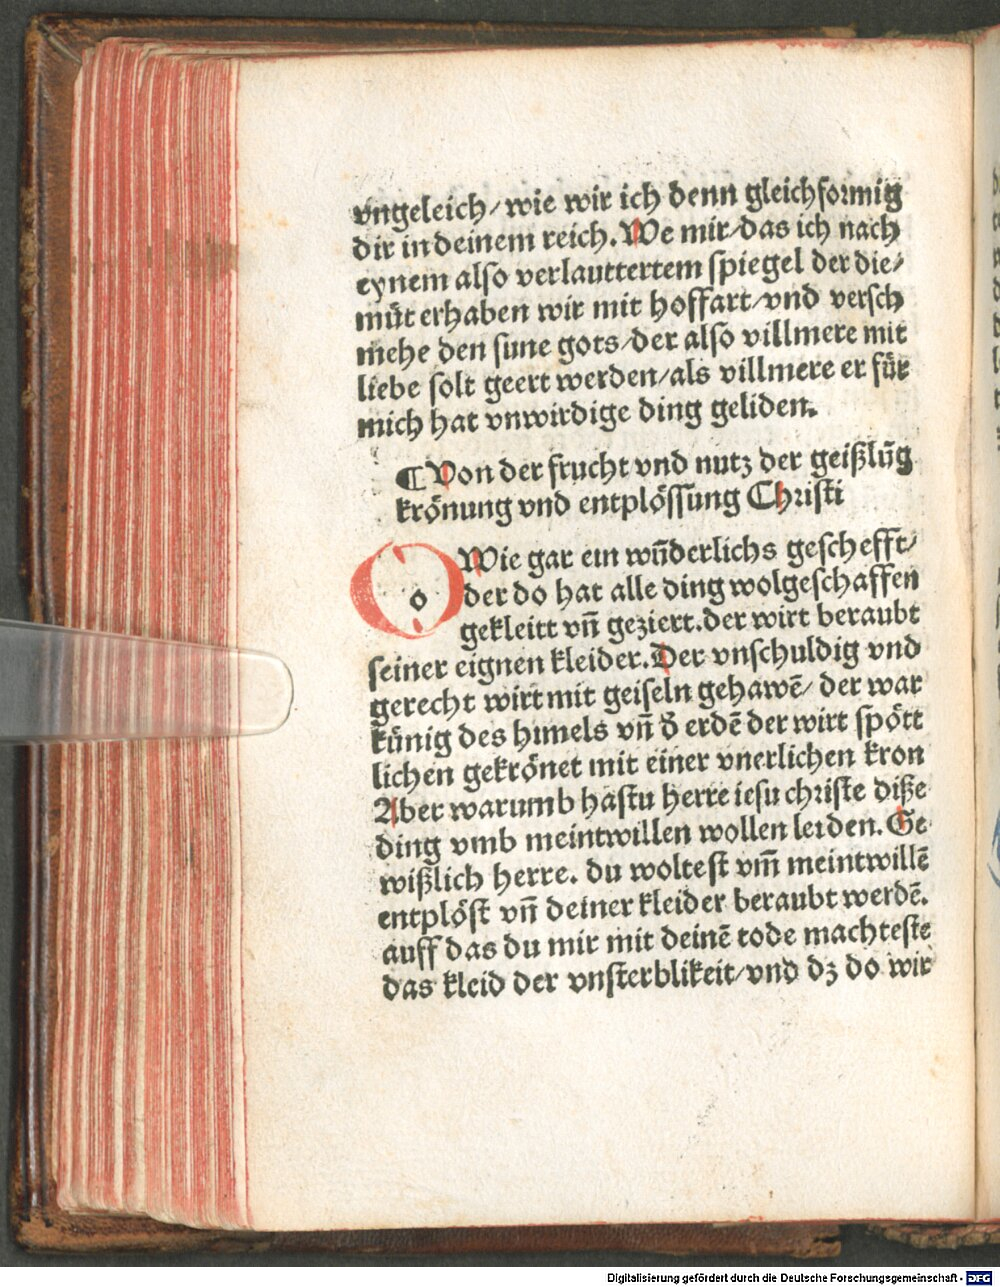 vngeleich/wie wir ich denn gleichformig
dir in deinem reich. We mir/das ich nach
eynem also verlauttertem spiegel der die⸗
müt erhaben wir mit hoffart/vnd versch
mehe den sune gots/der also villmere mit
liebe solt geert werden/als villmere er für
mich hat vnwirdige ding geliden.
¶ Von der frucht vnd nutz der geißlūg
krönung vnd entplössung Christi
O
o
Wie gar ein wūderlichs geschefft/
der do hat alle ding wolgeschaffen
gekleitt vn̄ geziert. der wirt beraubt
seiner eignen kleider. Der vnschuldig vnd
gerecht wirt mit geiseln gehawē/ der war
künig des himels vn̄ ð erdē der wirt spött
lichen gekrönet mit einer vnerlichen kron
Aber warumb hastu herre iesu christe diße
ding vmb meintwillen wollen leiden. Ge
wißlich herre. du woltest vm̄ meintwillē
entplöst vn̄ deiner kleider beraubt werdē.
auff das du mir mit deinē tode machteste
das kleid der vnsterblikeit/vnd dz do wir
Digitalisierung gefördert durch die Deutsche Forschungsgemeinschaft - DFG